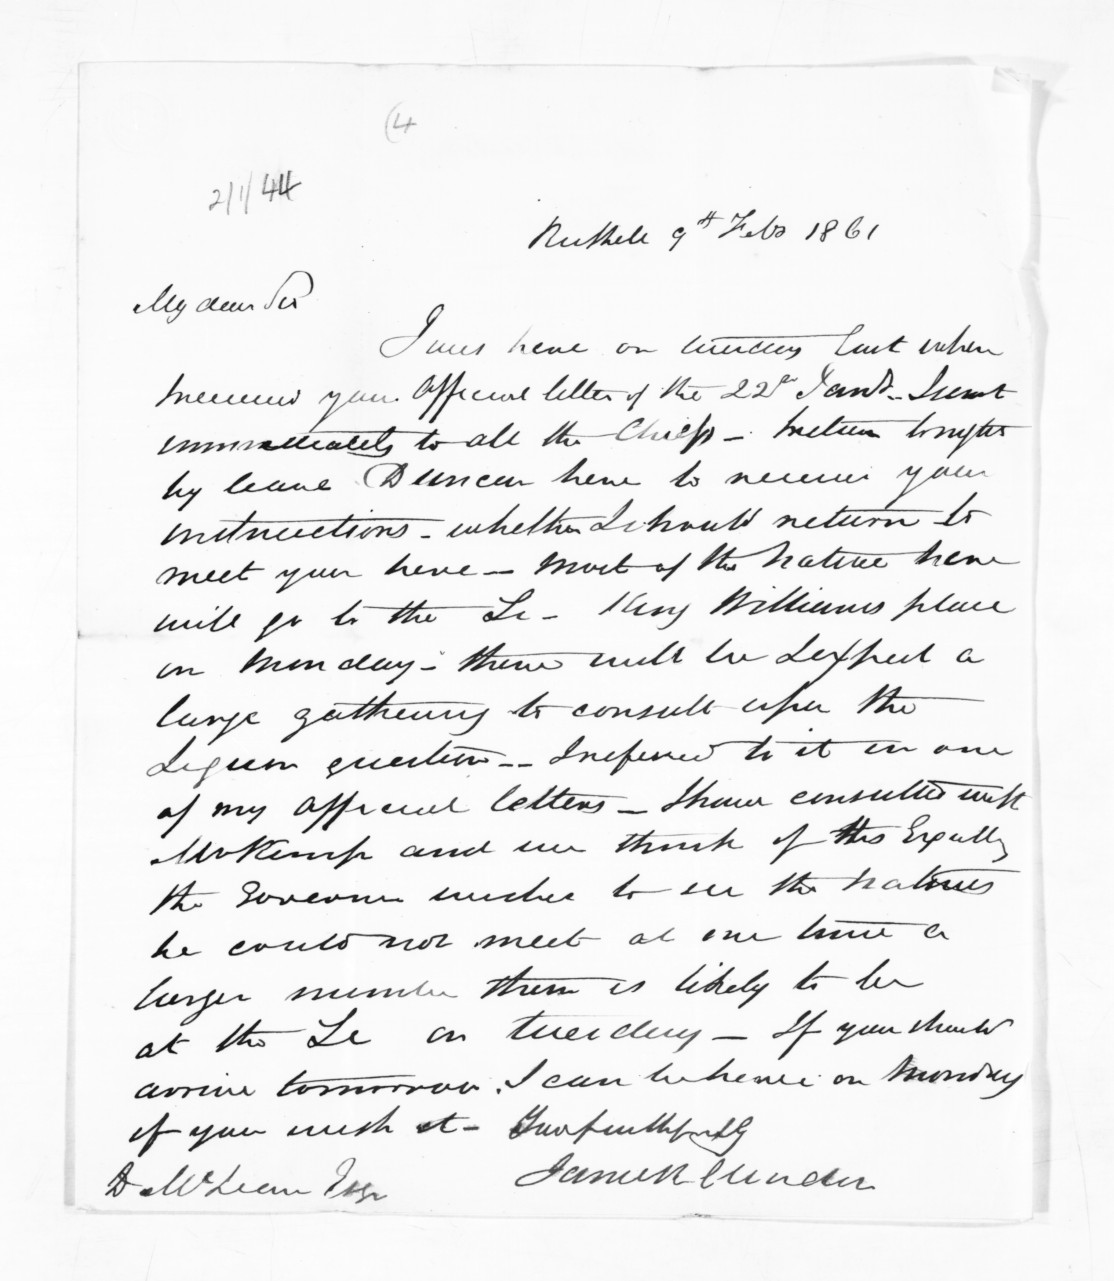 (4
2/1/44
Russell 9th Feby 1861
My dear Sir
I was here on Tuesday last when
received your Official letter of the 22d Jany - I sent
immediately to all the Chiefs - return tonight
by leave Duncan here to receive your
instructions - whether I should return to
meet you here - most of the Natives here
will go to the Ti - King Williams place
on Monday - there will be I expect a
large gathering to consult upon the
question -- I referred to it in one
of my Official letters - I have consulted with
Mr Kemp and we think if His Excelly
the Governor wishes to see the Natives
he could not meet at one time a
larger number than is likely to be
at the Ti on Tuesday - If you should
arrive tomorrow. I can be here on Monday
if you wish it - Yours faithfully
James R Clendon
D McLean Esqr